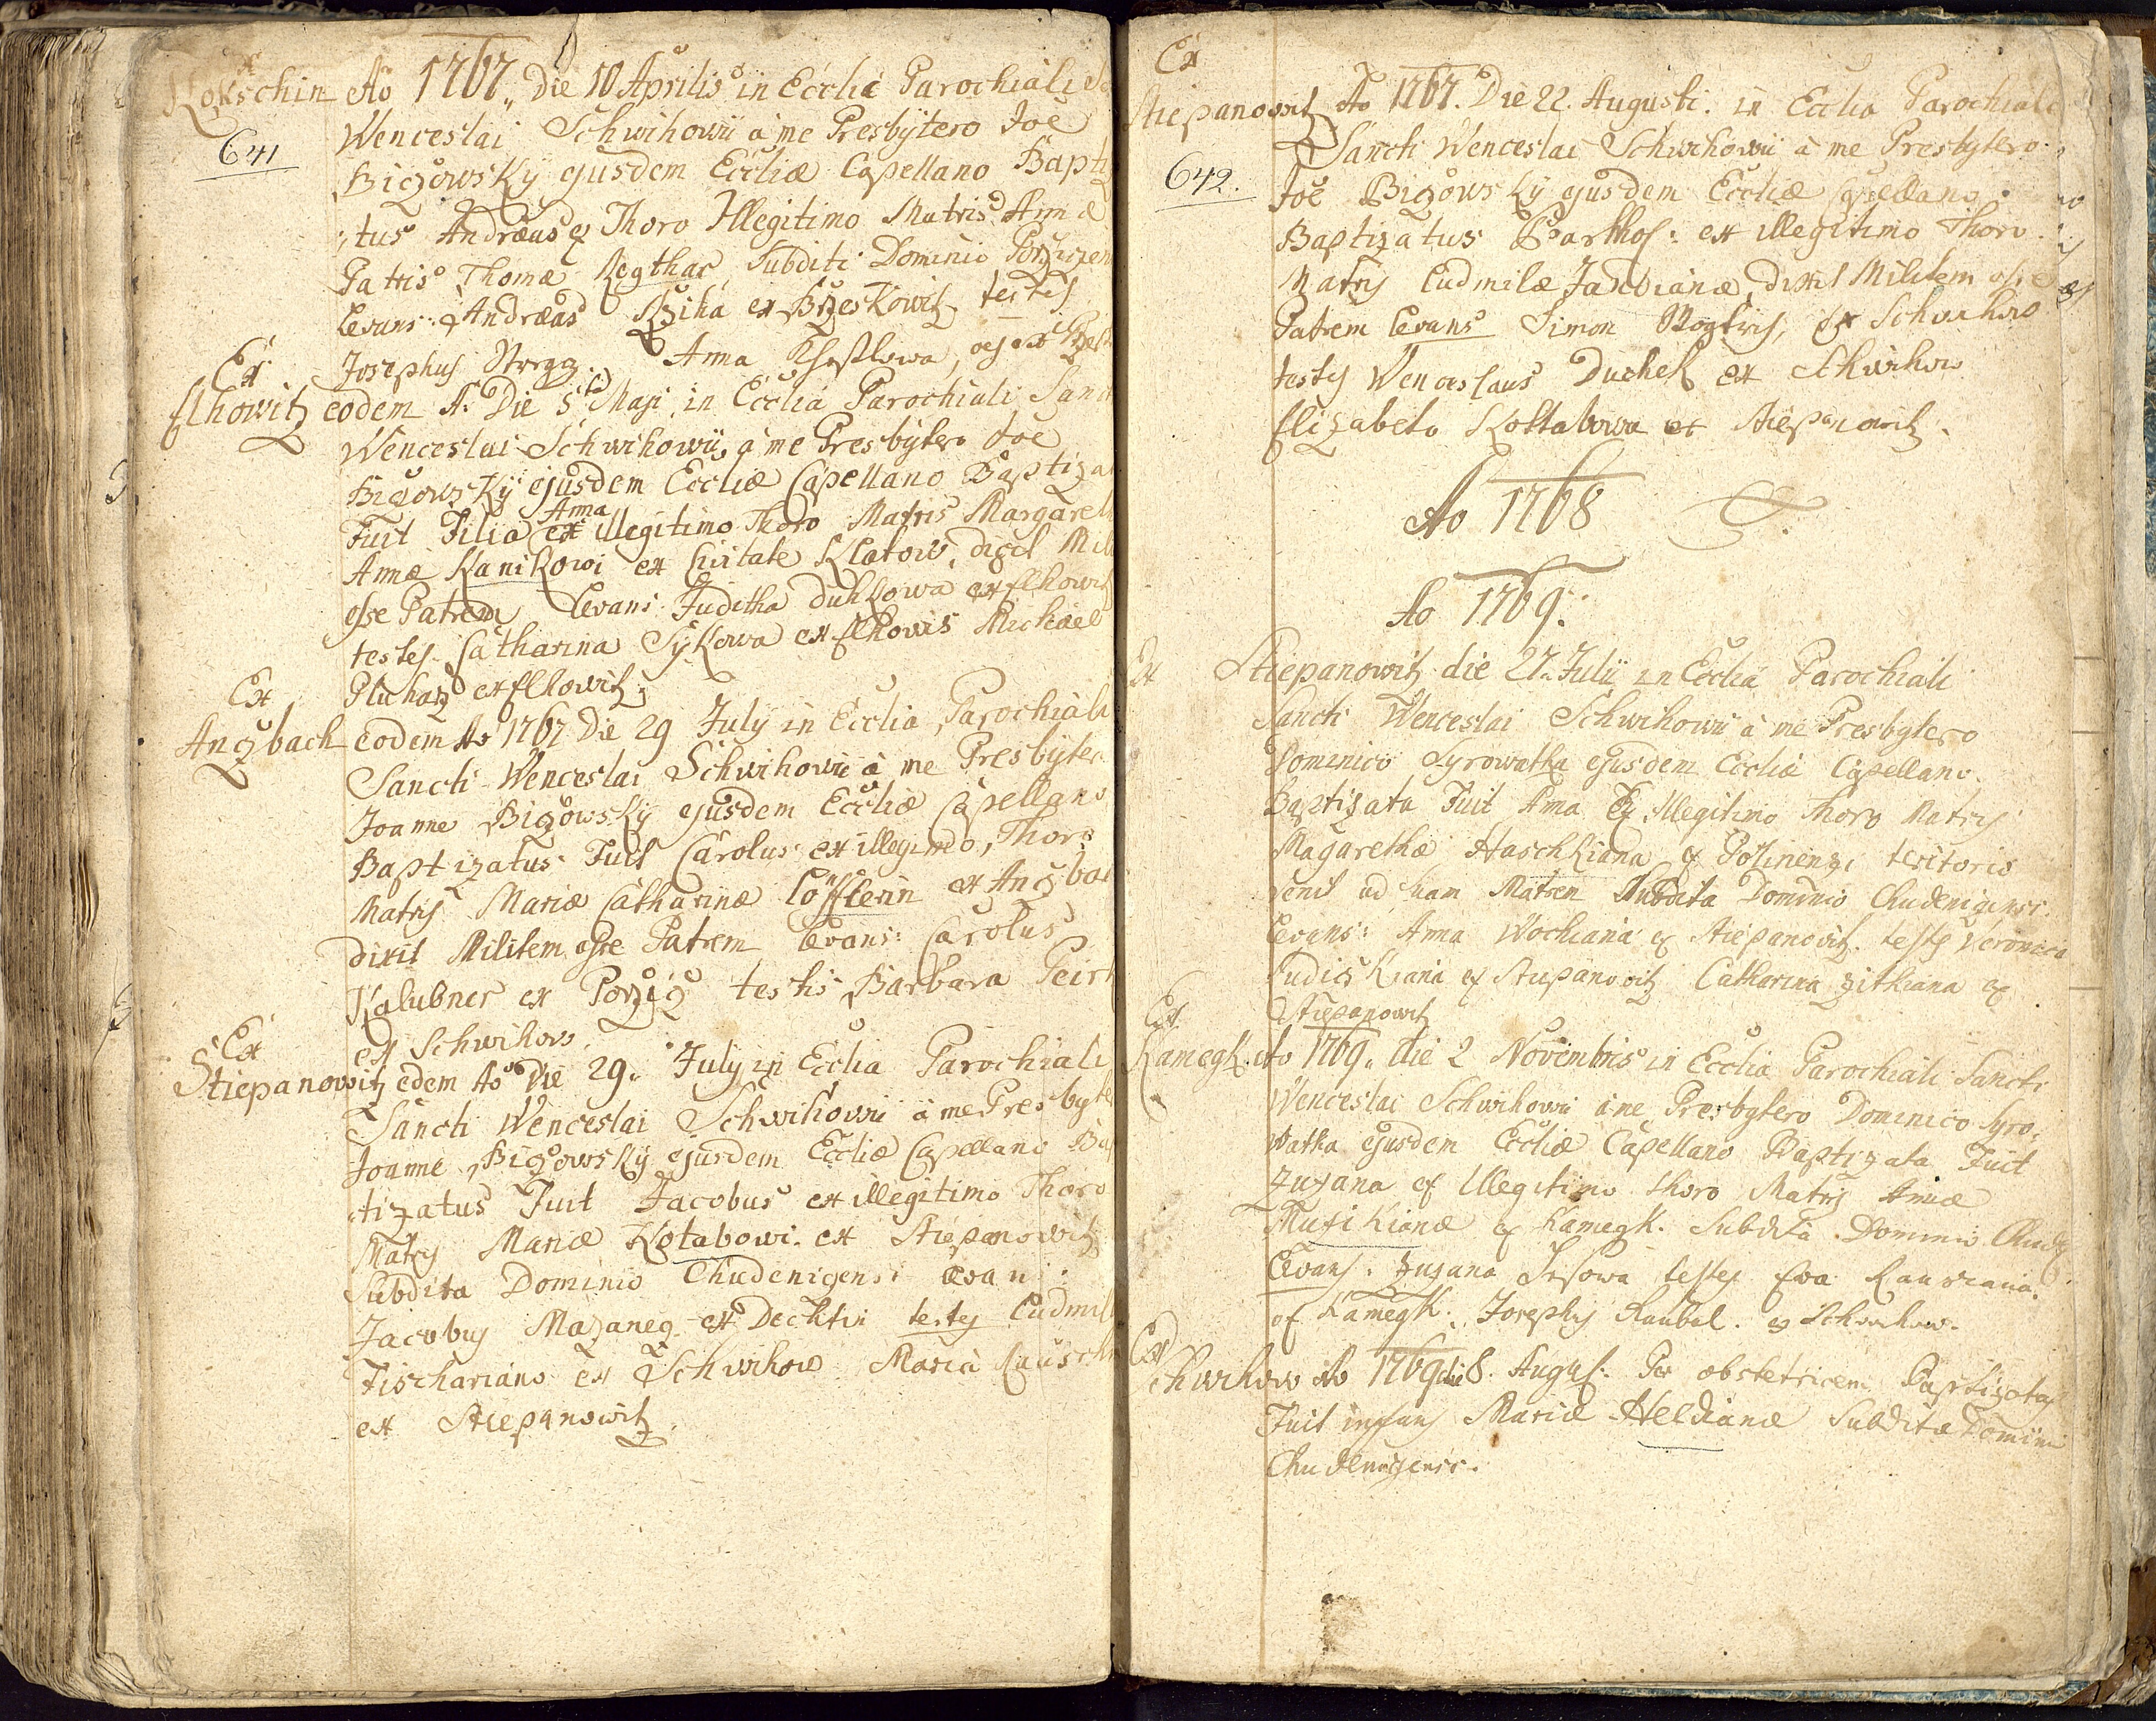 Ex
Kokschin Ao 1767, Die 10 Aprilis in Ecclia Parochiali
641
Wenceslai Schwihowii à me Presbytero Joe
Bizowsky ejusdem Eccliæ Capellano Bapti
tus Andræas ex Thoro Illegitimo Matris Annæ
Patris Thomæ Subditi Dominio
Levans: Andræas ex testes
Josephus Anna
Ex
Elhowitz eodem A: Die 5 Maji in Ecclia Parochiali Sanc
Wenceslai Schwihowii à me Presbytero Joe
Bizowsky ejusdem Eccliæ Capellano Baptiza
Anna
Fuit Filia ex illegitimo Thoro Matris Margareth
Annæ Kanikowi ex Civitate Klatow, dicit Mil
esse Patrem Levans: Juditha Duhkowa ex Elhowitz
testes Catharina Sykowa ex Elhowis Michael
Pluharz ex Elhowitz
Ex
Angbach eodem Ao 1767 Die 29 July in Ecclia Parochiali
Sancti Wenceslai Schwihowii à me Presbyter
Joanne Bizowsky ejusdem Eccliæ Capellano
Baptizatus Fuit Carolus ex illegimo Thoro
Matris Mariæ Catharinæ Löfflerin ex Angbac
dixit Militem esse Patrem Levans: Carolus
Kalubner ex Porzig testis Barbara
ex Schwihow.
Ex
Stiepanowitz edem Ao Die 29. July in Ecclia Parochiali
Sancti Wenceslai Schwihowii à me Presbyte
Joanne Bizowsky ejusdem Eccliæ Capellano Bap
tizatus Fuit Jacobus ex illegitimo Thoro
Matris Mariæ Kotabowi ex Stiepanowitz
Subdita Dominio Chudenigensi Levan:
Jacobus Mazaneg ex Dechtin testes Ludmil
Fischariano ex Schwihow Maria
ex Stiepanowitz
Ex
Stiepanowitz Ao 1767. Die 22. Augusti. in Ecclia Parochiale
642.
Sancti Wenceslai Schwihowii à me Presbytero
Joe Bizowsky ejusdem Eccliæ Capellano
Baptizatus Barthos: ex illegitimo Thoro
Matris Ludmilæ dixit Militem esse
Patrem Levans Simon Ex Schwihow
testes Wenceslaus Duchek ex Schwihow
Elizabeta Kottabowa ex Stiepanowitz.
Ao 1768
Ao 1769.
Ex Stiepanowitz die 27. Julii in Ecclia Parochiali
Sancti Wenceslai Schwihowii à me Presbytero
Dominico Syrowatka ejusdem Eccliæ Capellano.
Baptizata Fuit Anna Ex Illegitimo Thoro Matris
Magarethæ Haschkiana ex teritorio
venit ad suam Matrem Subdita Dominio Chudenizensi.
Levans: Anna Wochiana ex Stiepanowitz. testes Veronica
ex Stiepanowitz Catharina Zitkiana ex
Stiepanowitz
Ex
Kamegk. Ao 1769. die 2 Novembris in Ecclia Parochiali Sancti
Wenceslai Schwihowii à me Presbytero Dominico Syro:
watka ejusdem Eccliæ Capellano Baptizata Fuit
Zuzana ex Illegitimo thoro Matris Annæ
Musikianæ ex Kamegk. Subdita Dominio Chude
Levans: Zuzana testes Eva
ex Kamegk. Josephus Raubal. ex Schwihow.
Ex
Schwihow Ao 1769 die 8. August: Per obstetricem Baptizatus
Fuit infans Mariæ Heldianæ Subditæ Dominii
Chudenizensi.